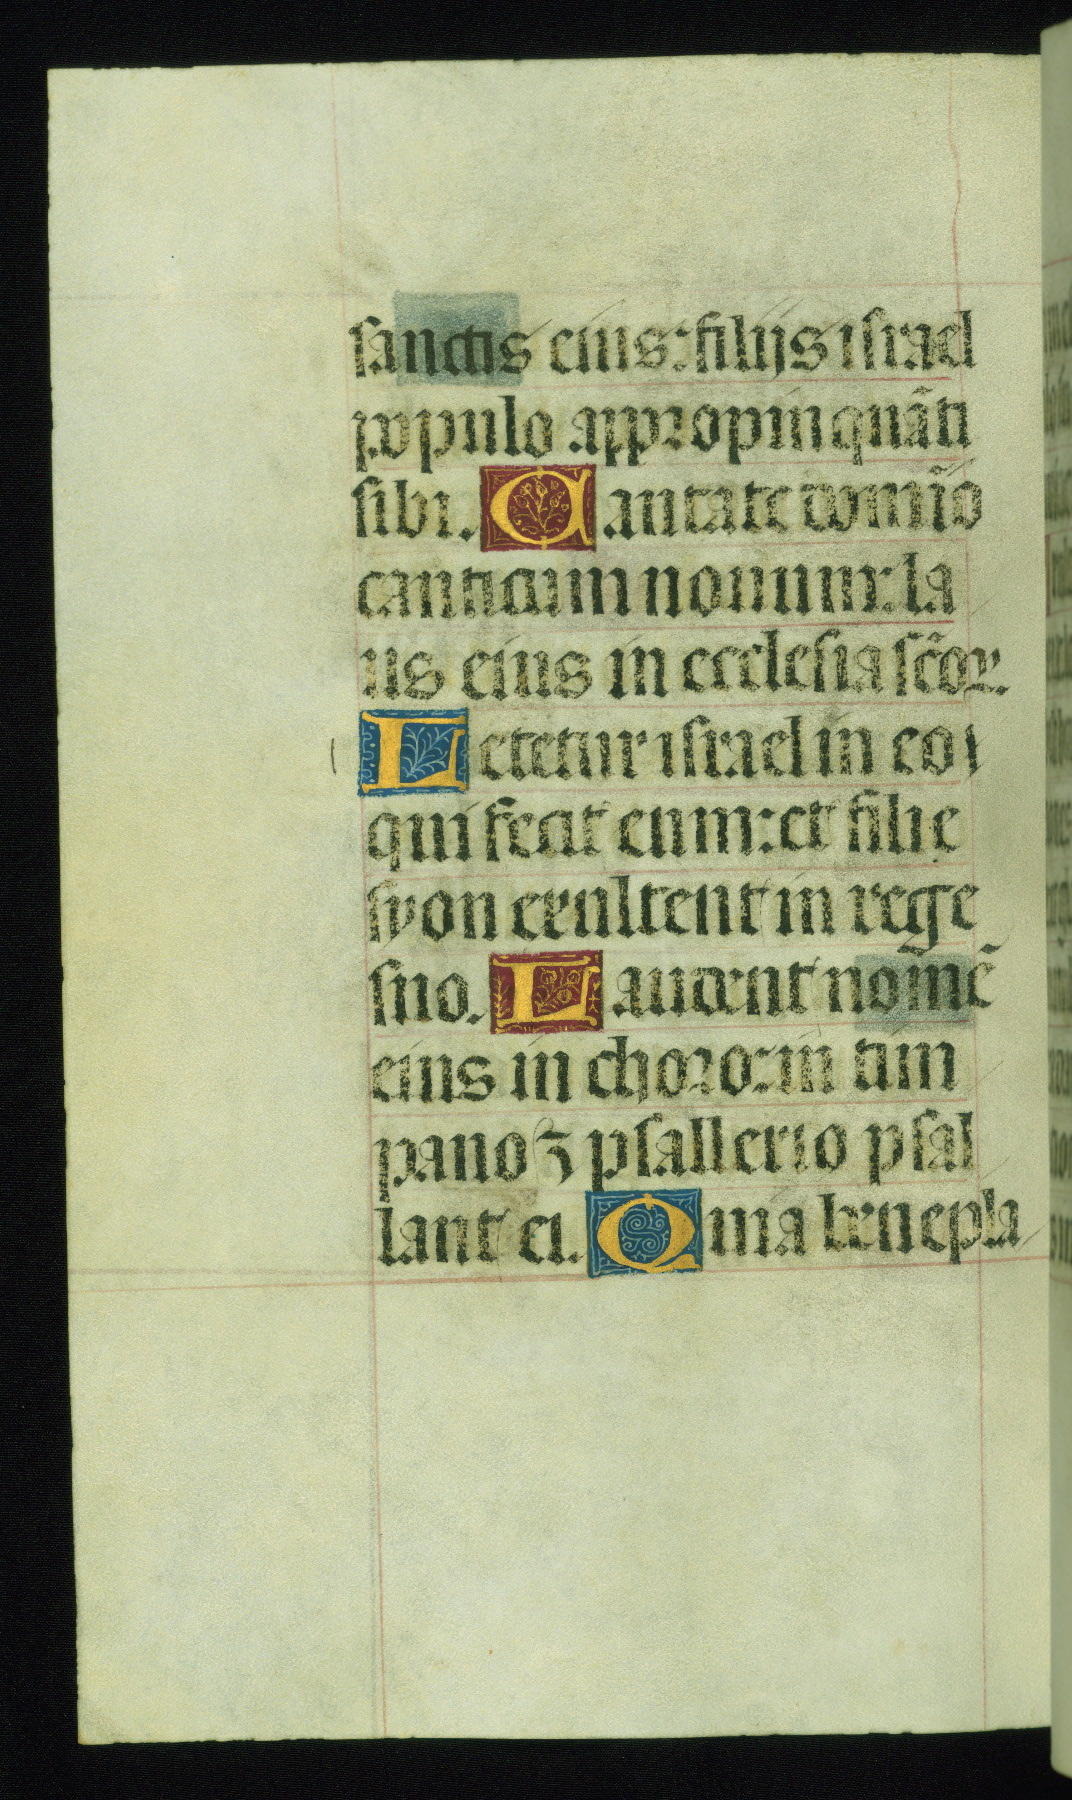 sanctis eius: filijs israel
populo appropinquãti
sibi. Cantate domĩo
canticum nouum: la
us eius in ecclesia sc̃oꝝ.
Letetur israel in eo
qui fecit eum: et filie
syon exultent in rege
suo. Laudent nomẽ
eius in choro: in tim
pano ⁊ psalterio psal
lant ei. Quia benepla